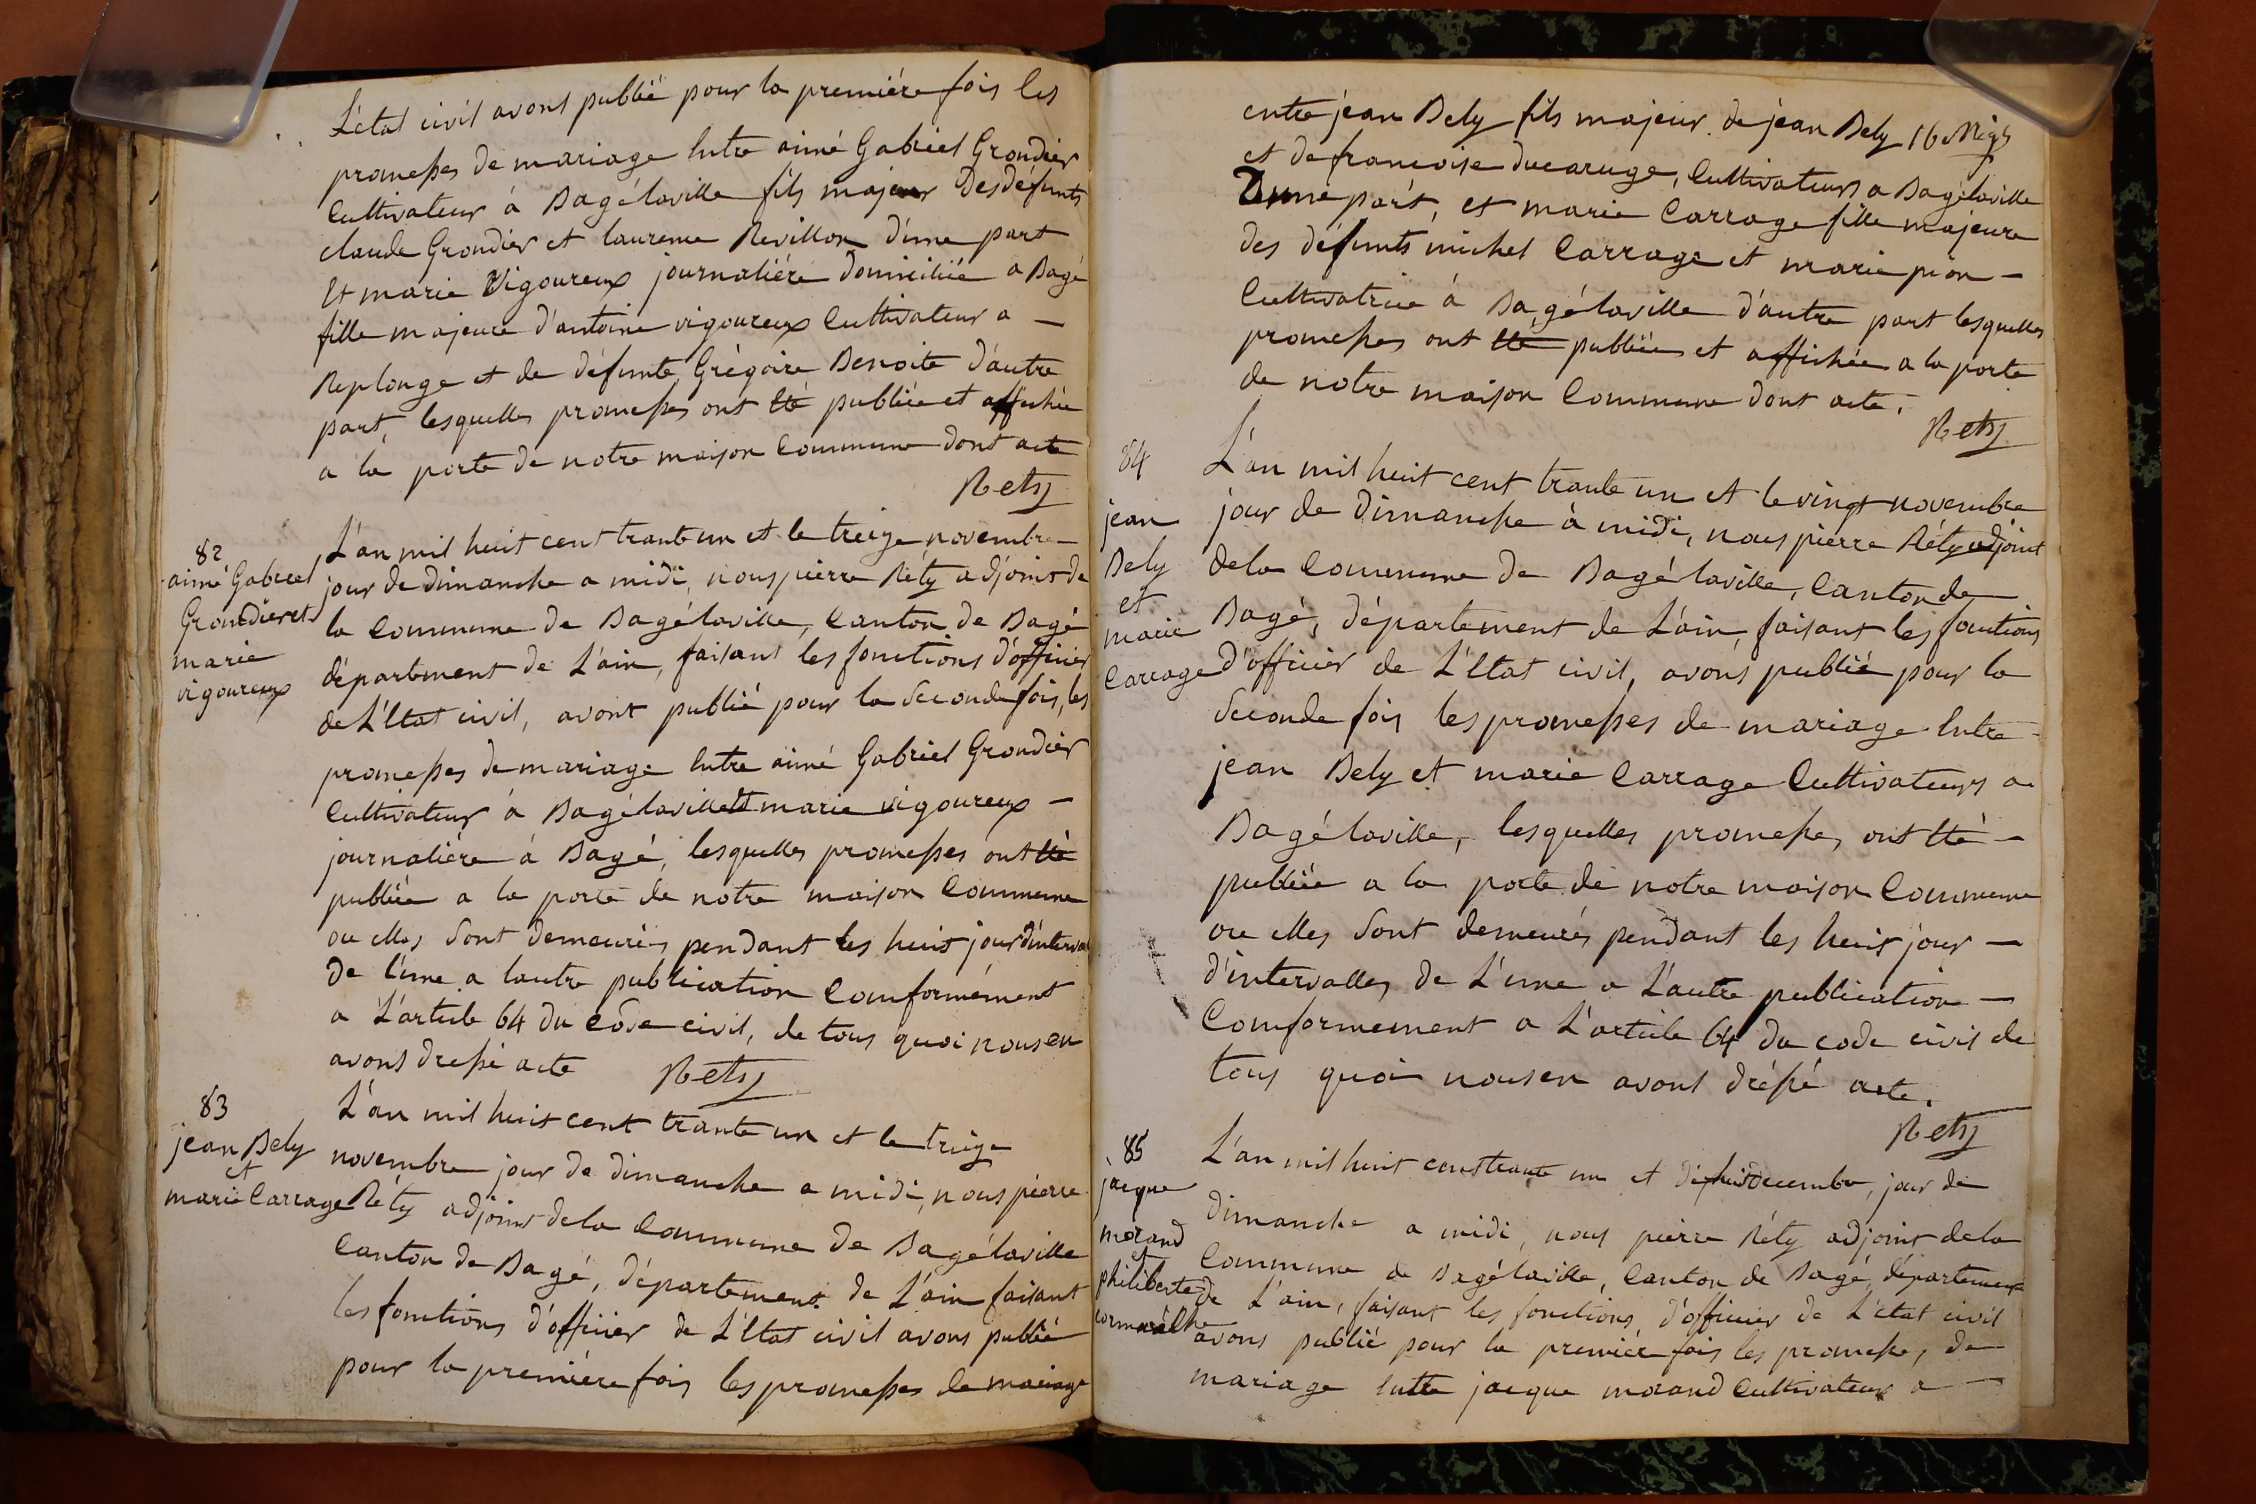 L'état civil avont publié pour la première fois les
promesses de mariage Entre aimé Gabriel Grondier
Cultivateur à Bagélaville fils majeur des défunts
claude Grondier et laurense Revillon d'une part
Et marie Vigoureux journalière domiciliée a Bagé
fille majeure d'antoine vigoureux Cultivateur a —
Replonge et de défunte Grégoire Benoite d'autre
part, lesquelles promesses ont Eté publiée et affichée
a la porte de notre maison Commune dont acte
Rety
82
aimé Gabriel
Grondier et
marie
vigoureux
L'an mil huit cent trante un et le treize novembre —
jour de dimanche a midi, nous pierre Réty adjoint de
la Commune de Bagélaville, Canton de Bagé
département de L'ain, faisant les fonctions d'officier
de L'Etat civil, avont publié pour la Seconde fois, les
promesses de mariage Entre aimé Gabriel Grondier
Cultivateur à Bagélaville Et marie vigoureux —
journalière à Bagé, lesquelles promesses ont Eté
publiée a la porte de notre maison Commune
ou elles Sont demeurés pendant les huit jour d'interval
de l'une a lautre publication Comformément
a L'article 64 du Code civil, de tous quoi nous en
avons dressé acte Rety
83
jean Bely
et
marie Carrage
L'an mil huit cent trante un et le treize
novembre jour de dimanche a midi, nous pierre
Réty adjoint de la Commune de Bagélaville
Canton de Bagé, département de L'ain faisant
les fonctions d'officier de L'Etat civil avons publié
pour la première fois les promesses de mariage
entre jean Bely fils majeur de jean Bely
et de francoise ducaruge, Cultivateurs a Bagélaville
D'une part, et marie Carrage fille majeure
des défunts michel Carrage et marie pion —
Cultivatrice à Bagélaville d'autre part lesquelles
promesses ont Eté publiées et affichée a la porte
de notre maison Commune dont acte.
Rety
84
jean
Bely
et
marie
Carrage
L'an mil huit cent trante un et le vingt novembre
jour de Dimanche à midi, nous pierre Réty adjoint
de la Commune de Bagélaville, Canton de
Bagé, département de L'ain, faisant les fonctions
d'officier de L'Etat civil, avons publié pour la
Seconde fois les promesses de mariage Entre
jean Bely et marie Carrage Cultivateurs a
Bagélaville, lesquelles promesses ont Eté —
publiée a la porte de notre maison Commune
ou elles Sont demeurés pendant les huit jour —
d'intervalles de L'une a L'autre publication —
Comformement a L'article 64 du code civil de
tous quoi nous en avont dréssé acte.
Rety
85
jacque
morand
et
philiberte
L'an mil huit cent trante un et dixhuit decembre, jour de
dimanche a midi, nous pierre Réty adjoint de la
Commune de Bagélaville, Canton de Bagé, département
de L'ain, faisant les fonctions d'officier de L'état civil
avons publié pour la première fois les promesses de
mariage Entre jacque morand Cultivateur a —